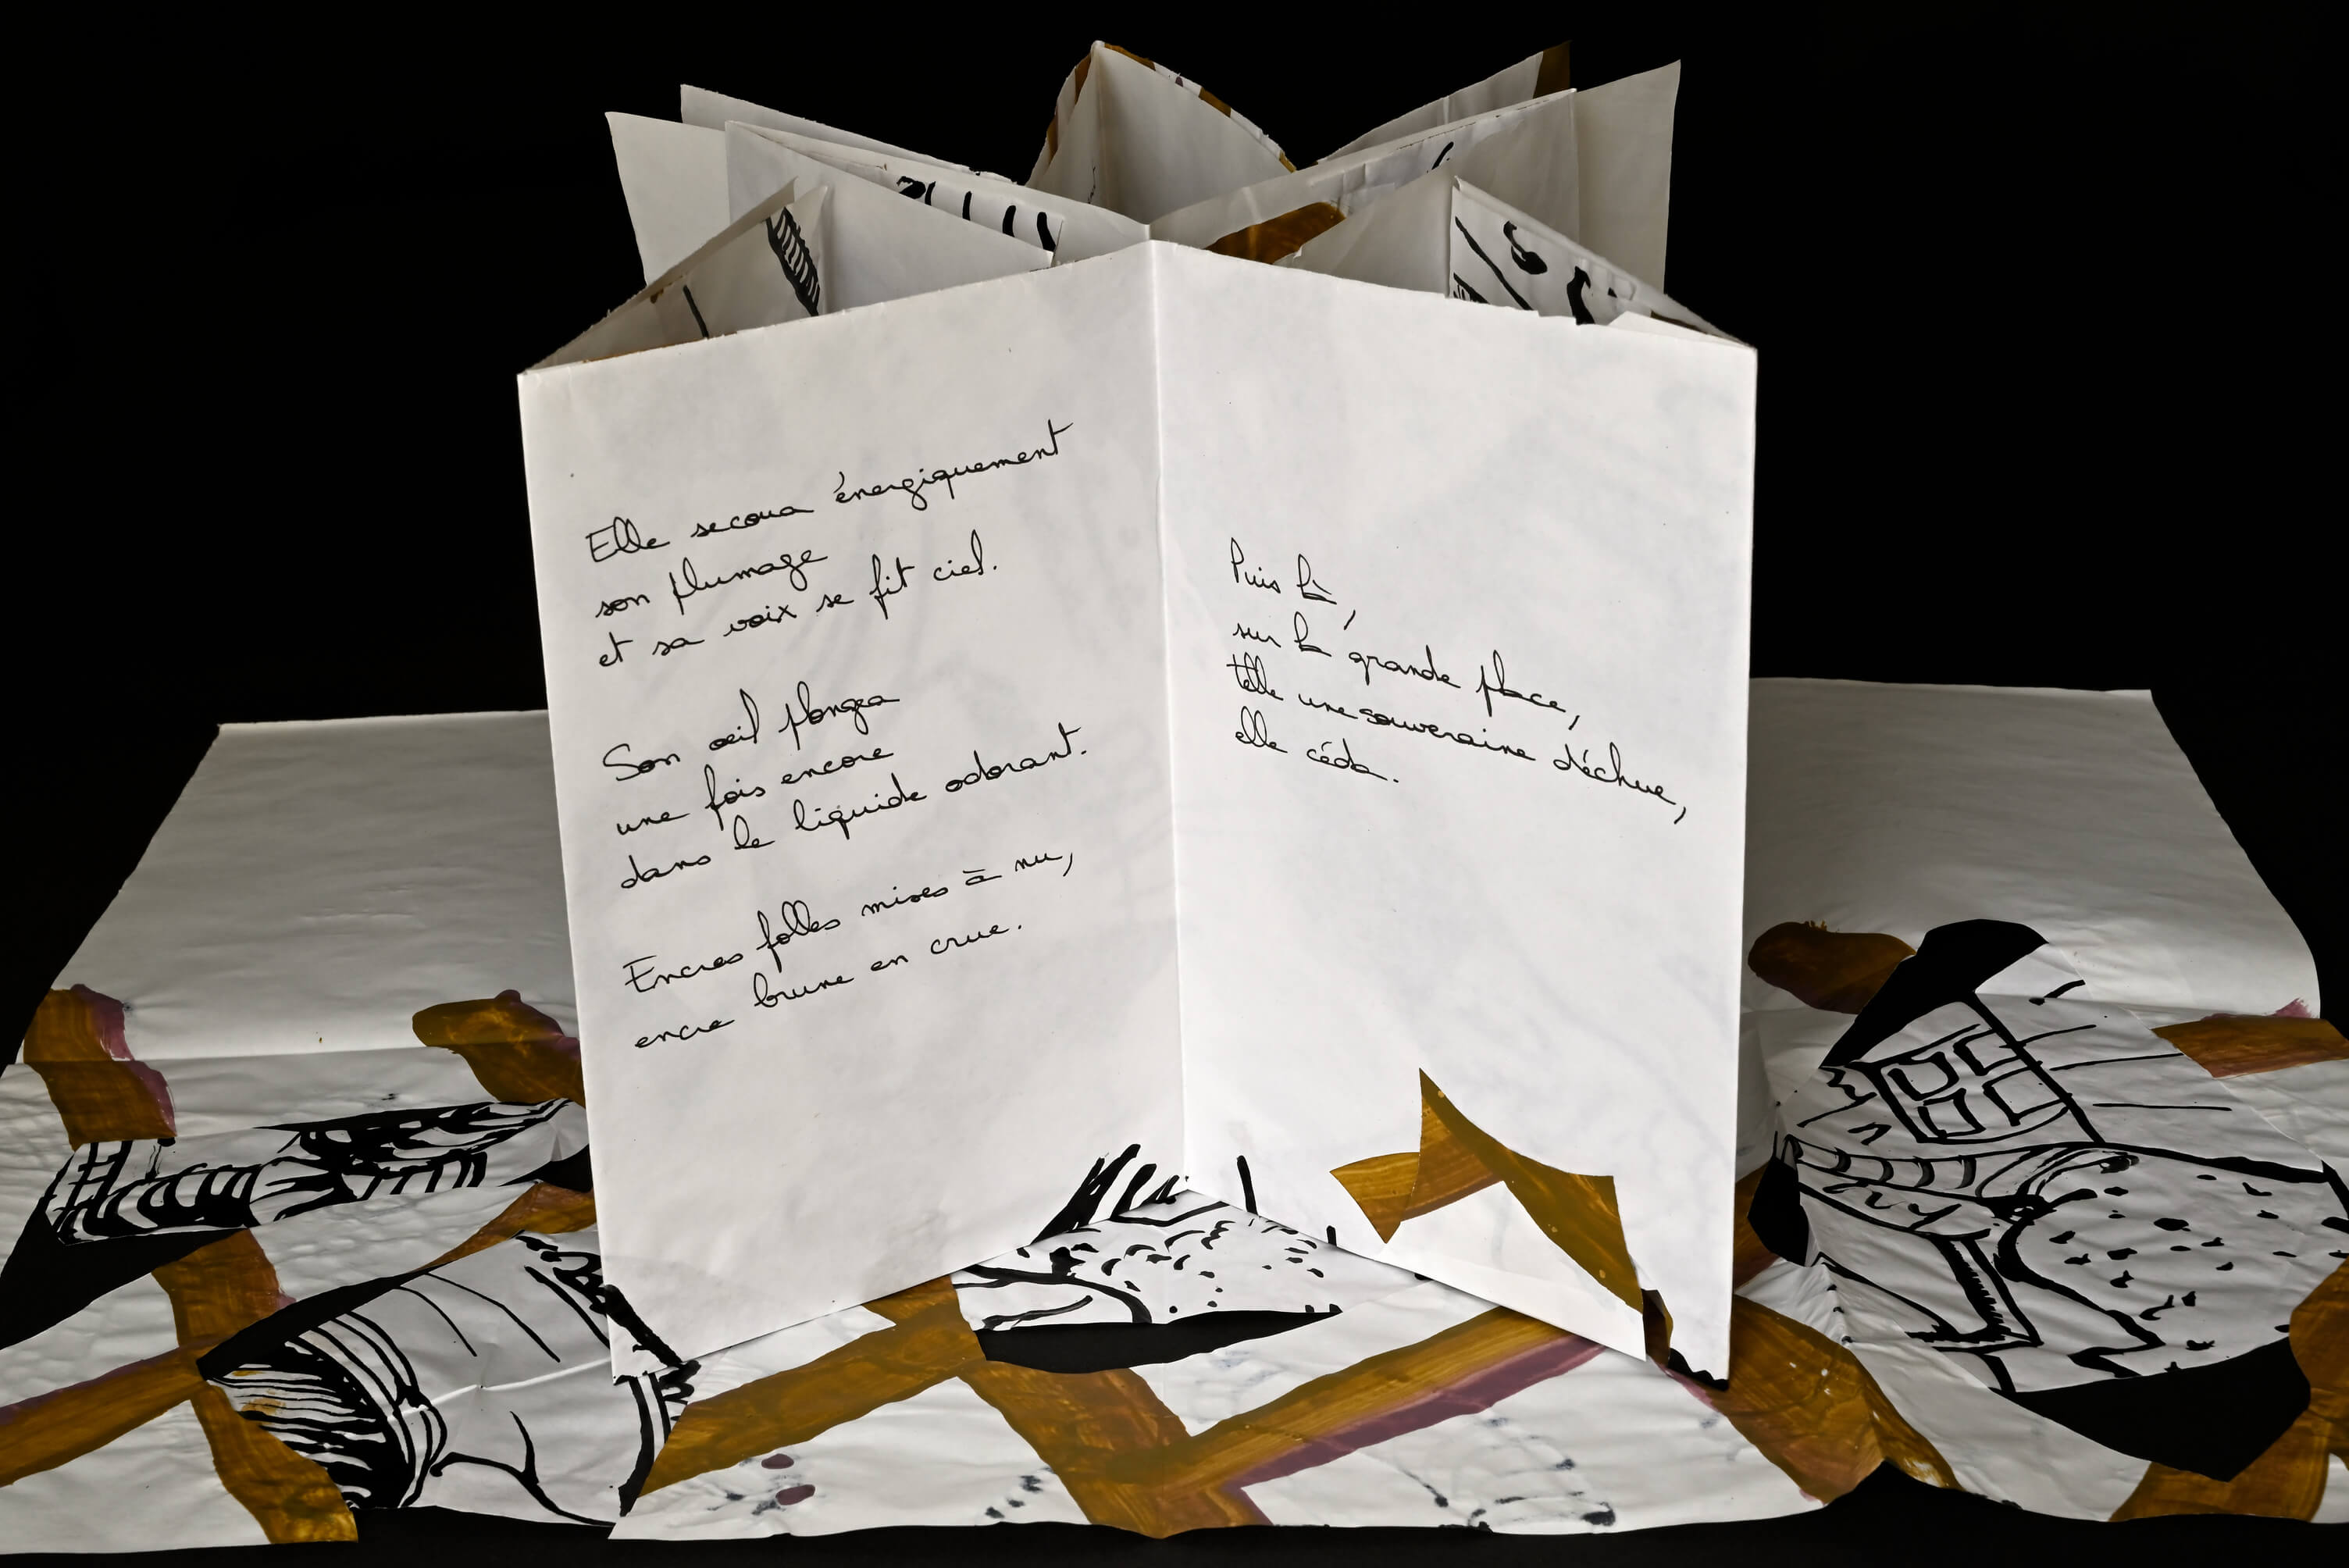 Elle secoua énergiquement
son plumage
et sa voix se fit ciel.
Son œil plongea
une fois encore
dans le liquide odorant.
Encres folles mises à nu,
encre brune en crue.
Puis là,
sur la grande place,
telle une souveraine déchue,
elle céda.